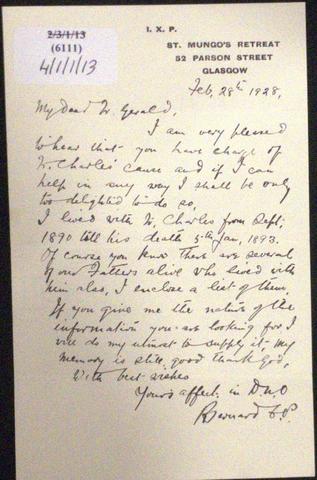 2/3/1/13
(6111)
4/1/1/13
I. X. P.
ST. MUNGO'S RETREAT
52 PARSON STREET
GLASGOW
Feb, 28th 1928,
My Dear Fr. Gerald,
I am very pleased
to hear that you have charge of
Fr. Charles' cause and if I can
help in any way I shall be only
too delighted to do so,
I lived with Fr. Charles from Sept:
1890 till his death 5th Jan, 1893.
Of course you know there are several
of our Fathers alive who lived with
him also, I enclose a list of them.
If you give me the nature of the
information you are looking for I
will do my utmost to supply it. My
memory is still good thank God,
With best wishes
Yours affect. in
Bernard C.P.